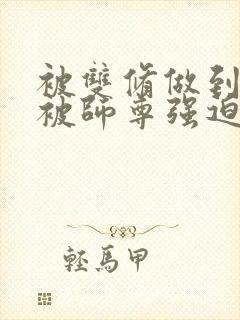 被雙脩做到
被師尊强迫
輕馬甲